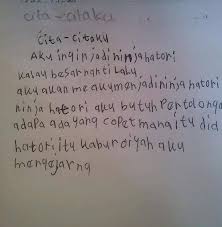 cita-citaku
Cita-citaku
AKu ingin jadi ninja hatori
kalau besar nanti Lalu
aku akan me akumenjadi ninja hatori
ninja hatori aku butuh Pertolonga
adapa ada yang copet mana itu did
hatori itu kabur diyah aku
mengejarng